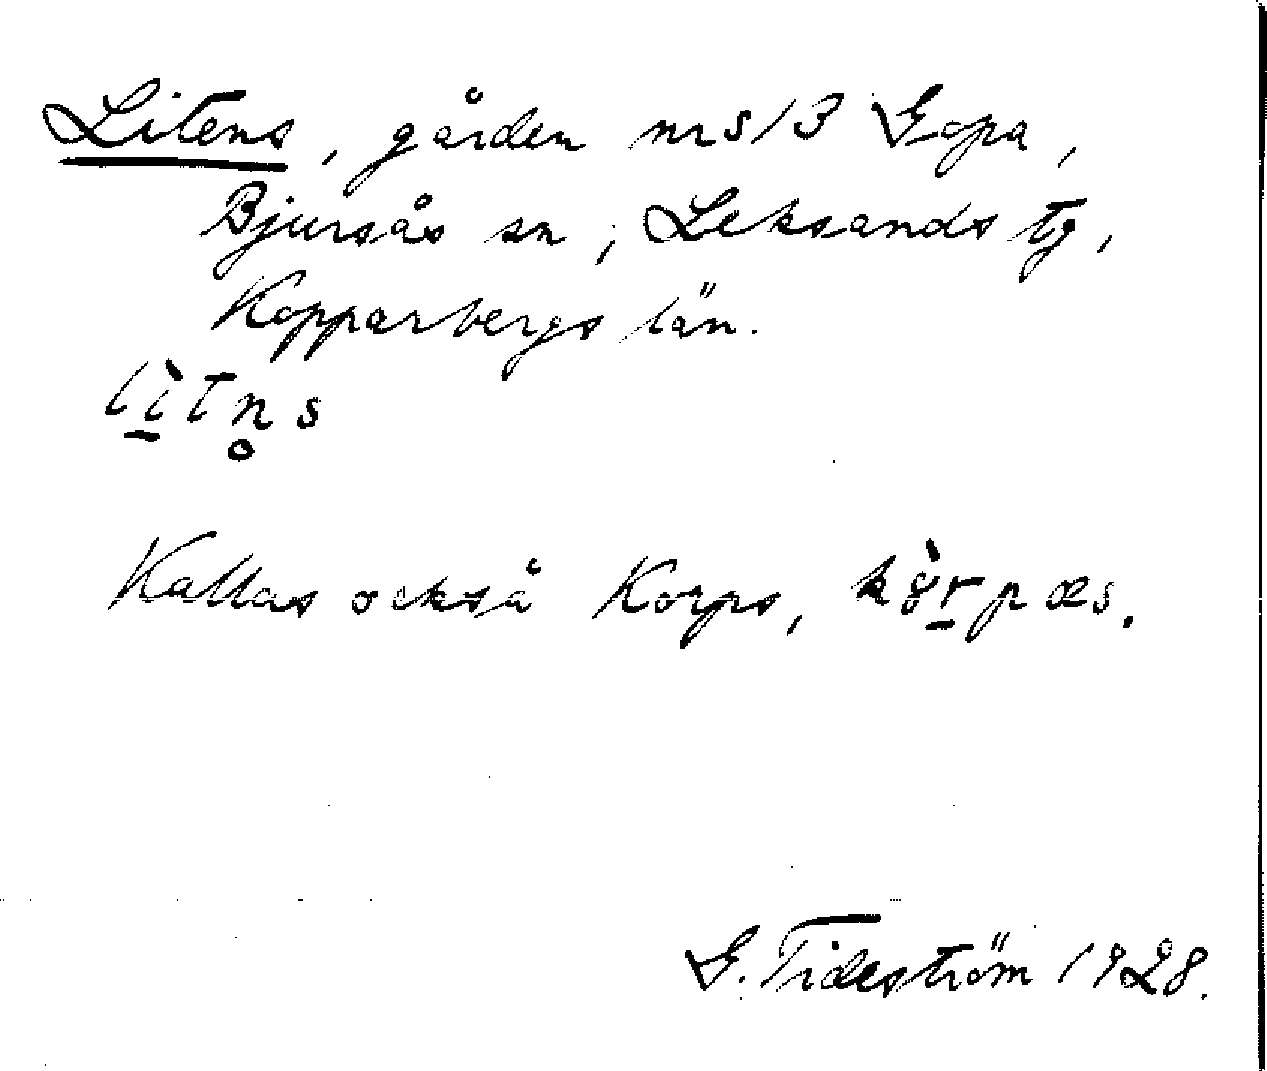 Litens, gården nr 13 Gopa,
Bjursås sn, Leksands tg,
Kopparbergs län.
lì̠tn̥s
Kallas också Korps, 
G. Tideström 1928.